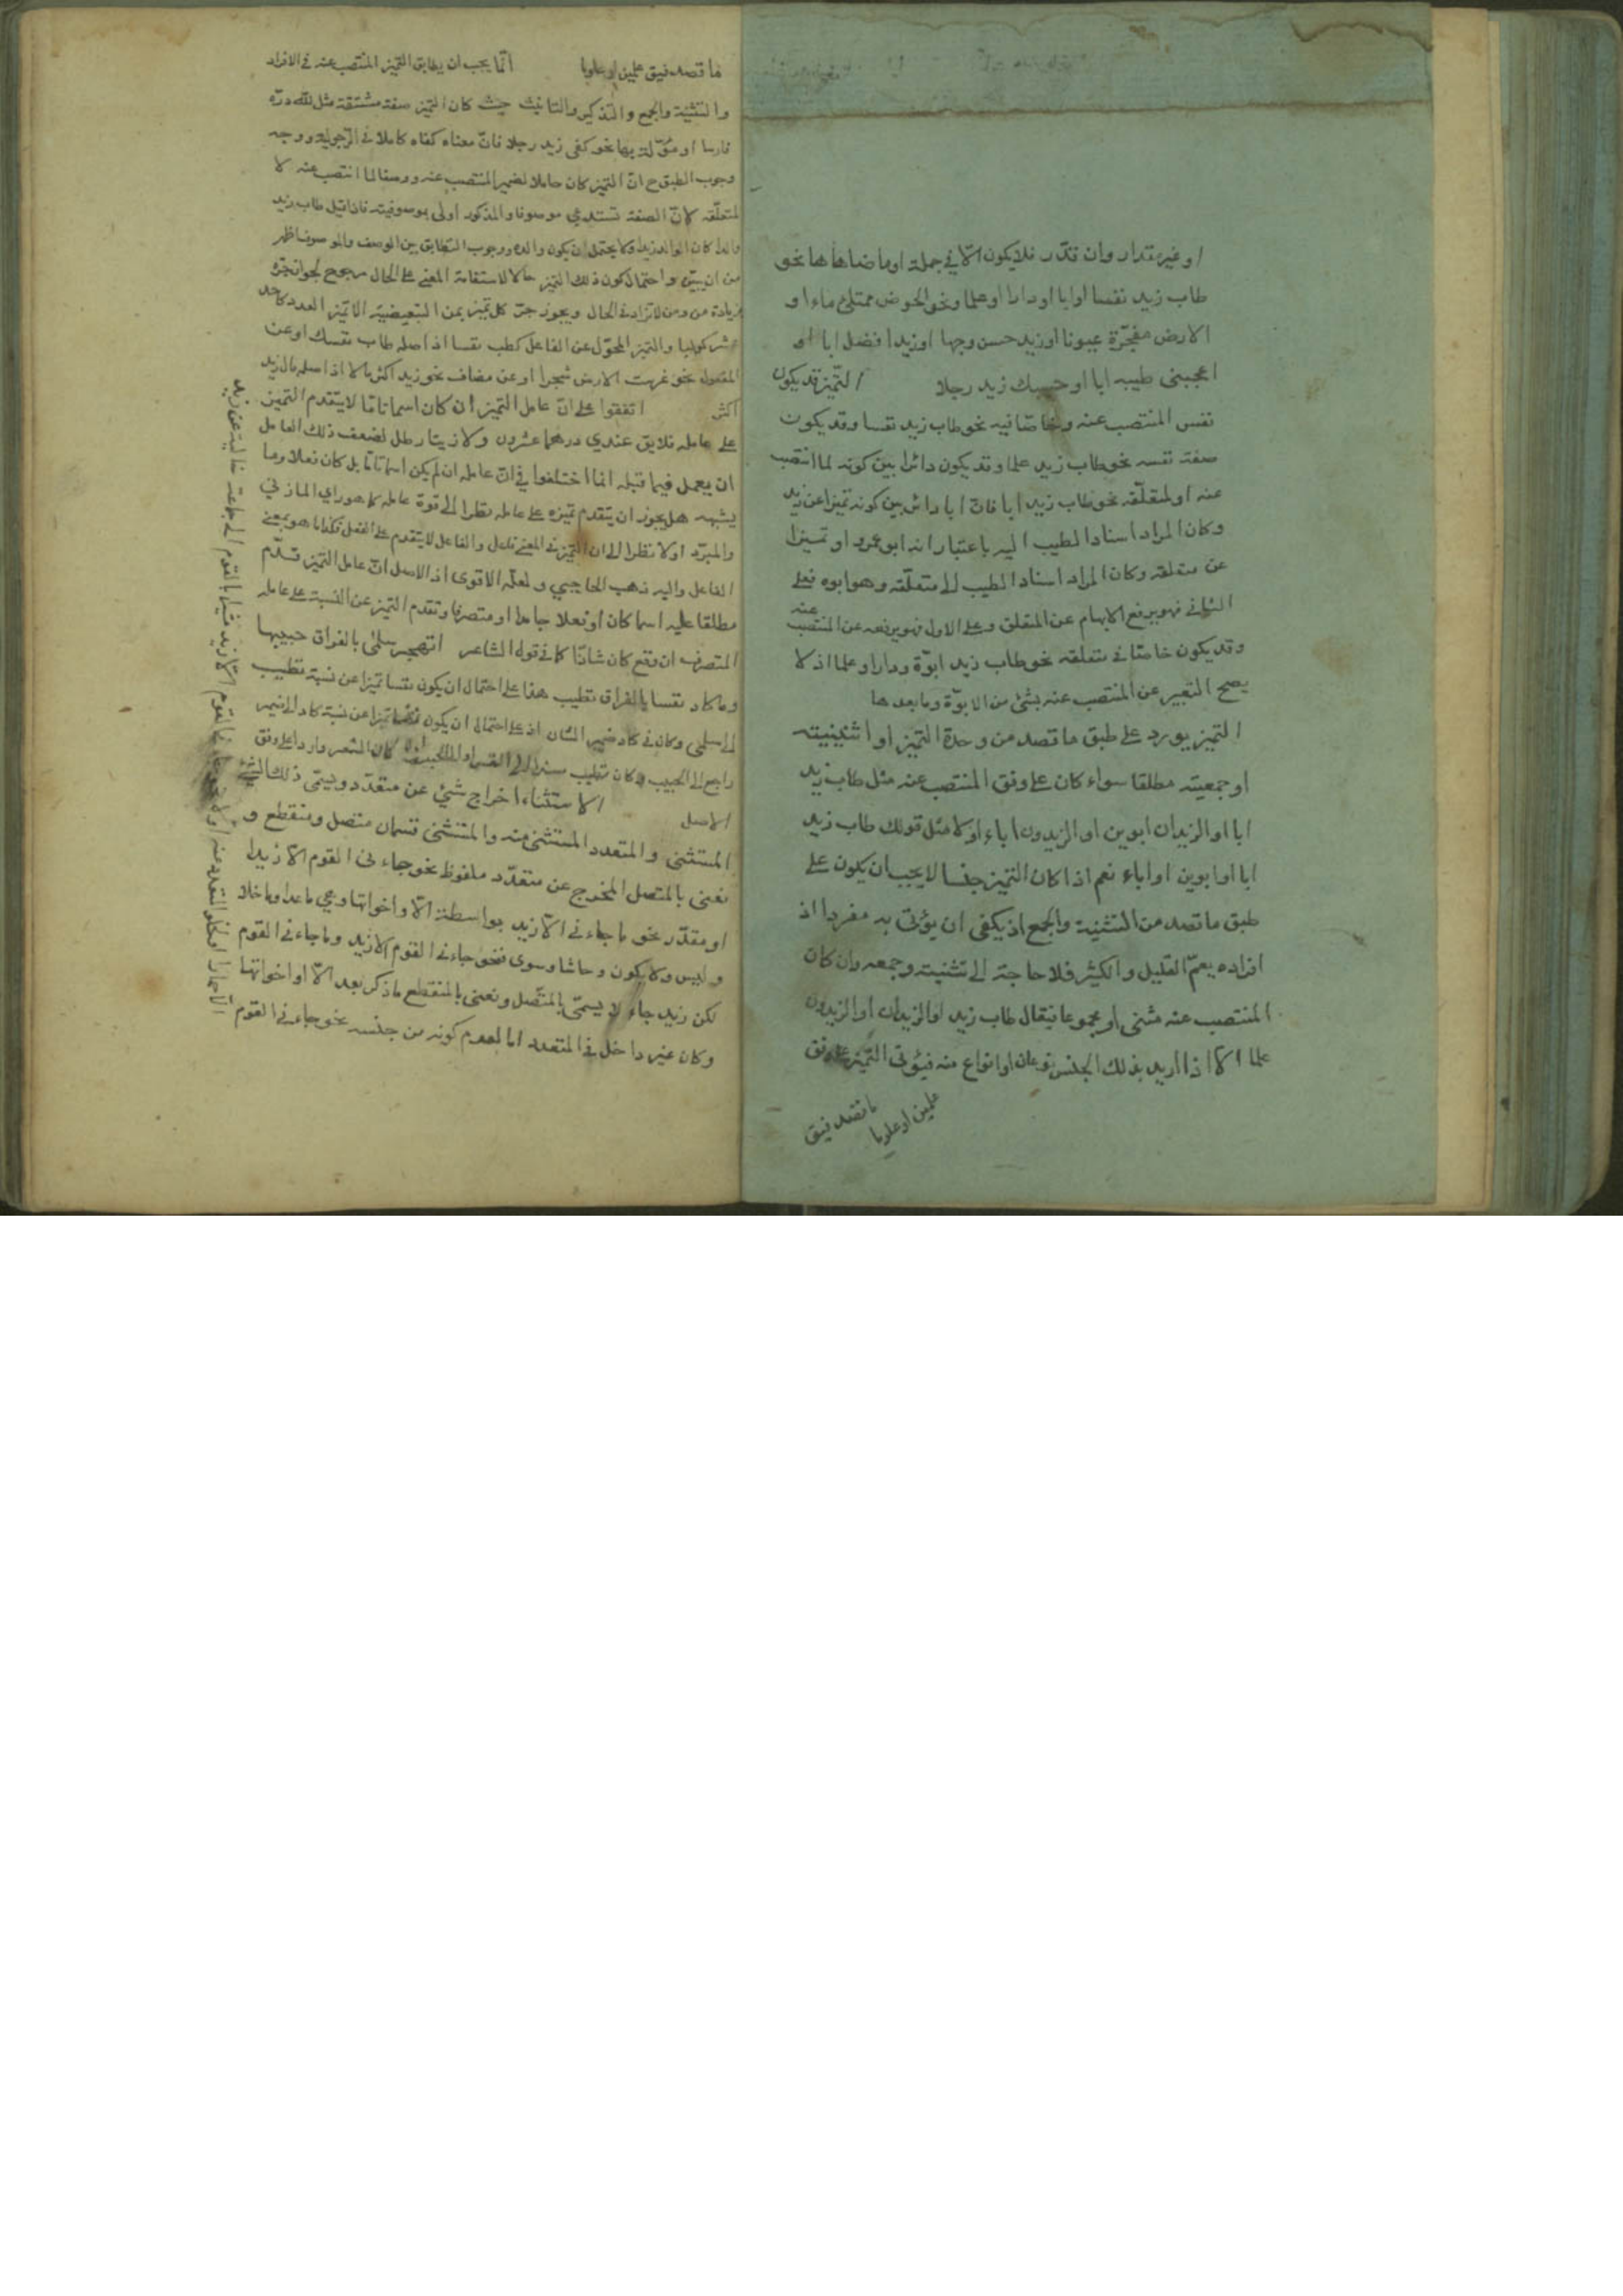 او غير مقدار وان قدّر فلا يكون الّا في جملة او ما ضاهاها نحو
طاب زيد نفسا او ابا او دارا او علما ونحو الحوض ممتلئ ماء او
الارض مفجّرة عيونا او زيد حسن وجها او زيد افضل ابا او
اعجبنى طيبه ابا او حسبك زيد رجلا التّميز قد يكون
نفس المنتصب عنه وخاصّا فيه نحو طاب زيد نفسا وقد يكون
صفة نفسه نحو طاب زيد علما وقد يكون دائرا بين كونه لما انتصب
عنه او لمتعلّقه نحو طاب زيد ابا فانّ ابا دائر بين كونه تميزا عن زيد
وكان المراد اسناد الطيب اليه باعتبار انه ابو عمرو او تميزا
عن متعلقه وكان المراد اسناد الطيب الى متعلّقه وهو ابوه فعلى
الثانى فهو يرفع الابهام عن المتعلق وعلى الاول فهو يرفعه عن المنتصب عنه
وقد يكون خاصّا فى متعلقه نحو طاب زيد ابوّة ودارا وعلما اذ لا
يصح التعبير عن المنتصب عنه بشئ من الابوّة وما بعدها
التميز يورد على طبق ما قصد من وحدة التميز او اثنينيته
او جمعيته مطلقا سواء كان على وفق المنتصب عنه مثل طاب زيد
ابا او الزيدان ابوين او الزيدون اباء اولا مثل قولك طاب زيد
ابا او ابوين او اباء نعم اذا كان التميز جنسا لا يجب ان يكون على
طبق ما قصد من التثنية والجمع اذ يكفى ان يؤتى به مفردا اذ
افراده يعمّ القليل والكثير فلا حاجة الى تثنيته وجمعه وان كان
المنتصب عنه مثنى او مجموعا فيقال طاب زيد او الزيدان او الزيدون
علما الّا اذا اريد بذلك الجنس نوعان او انواع منه فيؤتى التميز على وفق
ما قصد فيق
علمين او علوما
ما قصد فيق علمين او علوما انّما يجب ان يطابق التميز المنتصب عنه فى الافراد
والتثنية والجمع والتذكير والتانيث حيث كان التميز صفة مشتقة مثل لله درّه
فارسا او مؤّلة بها نحو كفى زيد رجلا فانّ معناه كفاه كاملا فى الرّجولية ووجه
وجوب الطبق ح انّ التميز كان حاملا لضمير المنتصب عنه ووصفا لما انتصب عنه لا
لمتعلّقه لانّ الصفة تستدعي موصوفا والمذكور اولى بموصوفيته فاذا قيل طاب زيد
والدا كان الوالد زيدا ولا يحتمل ان يكون والده ووجوب التطابق بين الوصف والموصوف اظهر
من ان يبيّن واحتمال كون ذلك التميز حالا لاستقامة المعنى على الحال مرجوح لجواز جرّه
بزيادة من ومن لا تزاد فى الحال ويجوز جرّ كل تميز بمن التبعيضية الا تميز العدد كاحد
عشر كوكبا والتميز المحوّل عن الفاعل كطب نفسا اذ اصله طاب نفسك او عن
المفعول نحو غرست الارض شجرا او عن مضاف نحو زيد اكثر مالا اذ اصله مال زيد
اكثر اتفقوا على انّ عامل التميز ان كان اسما تامّا لا يتقدم التميز
على عامله فلا يق عندي درهما عشرون ولا زيتا رطل لضعف ذلك العامل
ان يعمل فيما قبله انما اختلفوا فى انّ عامله ان لم يكن اسما تامّا بل كان فعلا وما
يشبهه هل يجوز ان يتقدم تميزه على عامله نظرا الى قوة عامله كما هو راي المازني
والمبرّد اولا نظرا الى ان التميز فى المعنى فاعل والفاعل لا يتقدم على الفعل فكذا ما هو بمعنى
الفاعل واليه ذهب الحاجبي ولعلّه الاقوى اذ الاصل انّ عامل التميز قدّم
مطلقا عليه اسما كان او فعلا جامدا او متصرفا وتقدم التميز عن النسبة على عامله
المتصرف ان وقع كان شاذّا كما فى قول الشاعر اتهجر سلمى بالفراق حبيبها
وما كاد نفسا بالفراق تطيب هذا على احتمال ان يكون نفسا تميزا عن نسبة تطيب
الى سلمى وكان فى كاد ضمير الشان اذ على احتمال ان يكون نفسا تميزا عن نسبة كاد الى ضمير
راجع الى الحبيب وكان تطيب مسندا الى كان الشعر واردا على وفق
الاصل الاستثناء اخراج شئ عن متعدّد ويسمّى ذلك الشئ
المستثنى والمتعدد المستثنى منه والمستثنى قسمان متصل ومنقطع و
نعنى بالمتصل المخرج عن متعدّد ملفوظ نحو جاءنى القوم الّا زيدا
او مقدّر نحو ما جاءنى الّا زيد بواسطة الّا واخواتها وهي ما عدا وما خلا
وليس ولا يكون وحاشا وسوى فنحو جاءنى القوم لا زيد وما جاءنى القوم
لكن زيد جاء لا يسمّى بالمتّصل ونعنى بالمنقطع ما ذكر بعد الّا او اخواتها
وكان غير داخل فى المتعدد اما لعدم كونه من جنسه نحو جاءنى القوم
الّا حمارا